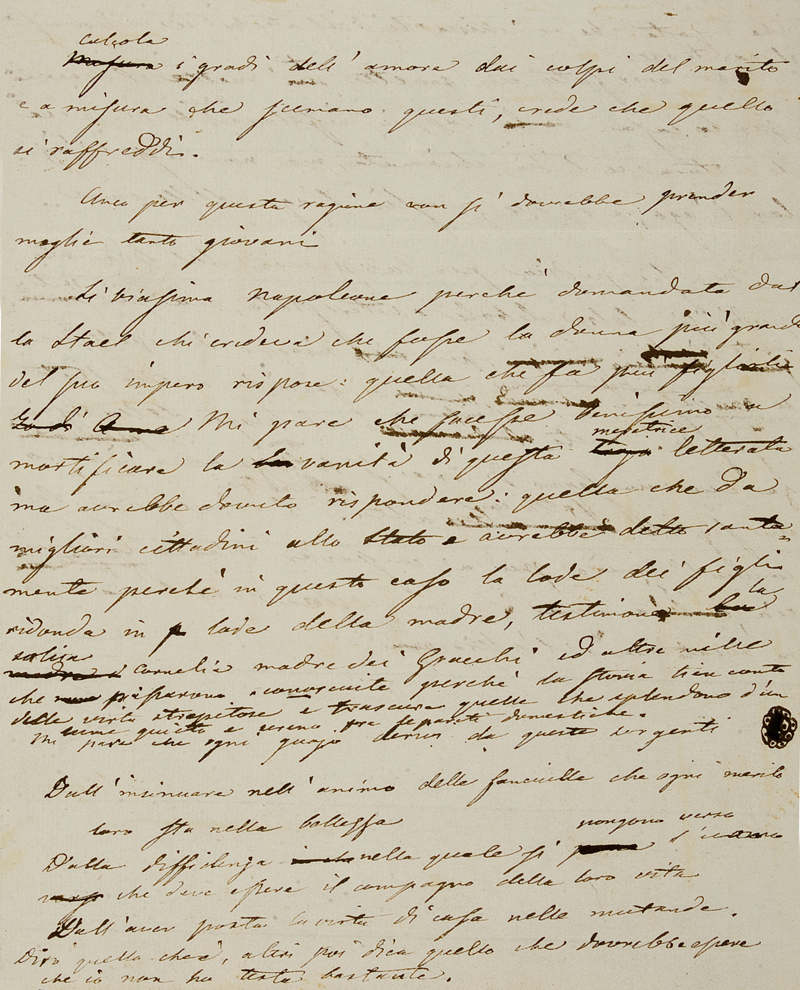 calcola
Misura i gradi dell' amore dai colpi del marito
e a misura che scemano questi, crede che quello
si raffreddi.
Anco per questa ragione non si dovrebbe prender
moglie tanto giovani
Napoleone perché domandato dal
la Stael chi credeva che fosse la donna più grande
del suo impero rispose: quella che fa più figli
Mi pare che facesse benissimo a
meretrice
mortificare la vanità di questa letterata
ma avrebbe dovuto rispondere: quella che dà
migliori cittadini allo Stato e avrebbe detto santa=
mente perché in questo caso la lode dei figli
la
ridonda in lode della madre, testimone
Cornelia madre dei Gracchi ed altre mille
che conosciute perché la storia tien conto
delle virtù strepitose e trascura quelle che splendono d'un
lume quieto e sereno fra le pareti domestiche.
Mi pare che ogni guajo derivi da queste sorgenti
Dall' insinuare nell' animo delle fanciulle che ogni merito
loro sta nella bellezza
pongono verso
Dalla diffidenza nella quale si
che deve essere il compagno della loro vita
Dall' aver posta la virtù di casa nelle mutande.
Dirò quello che è, altri poi dica quello che dovrebbe essere
che io non ho testa bastante.